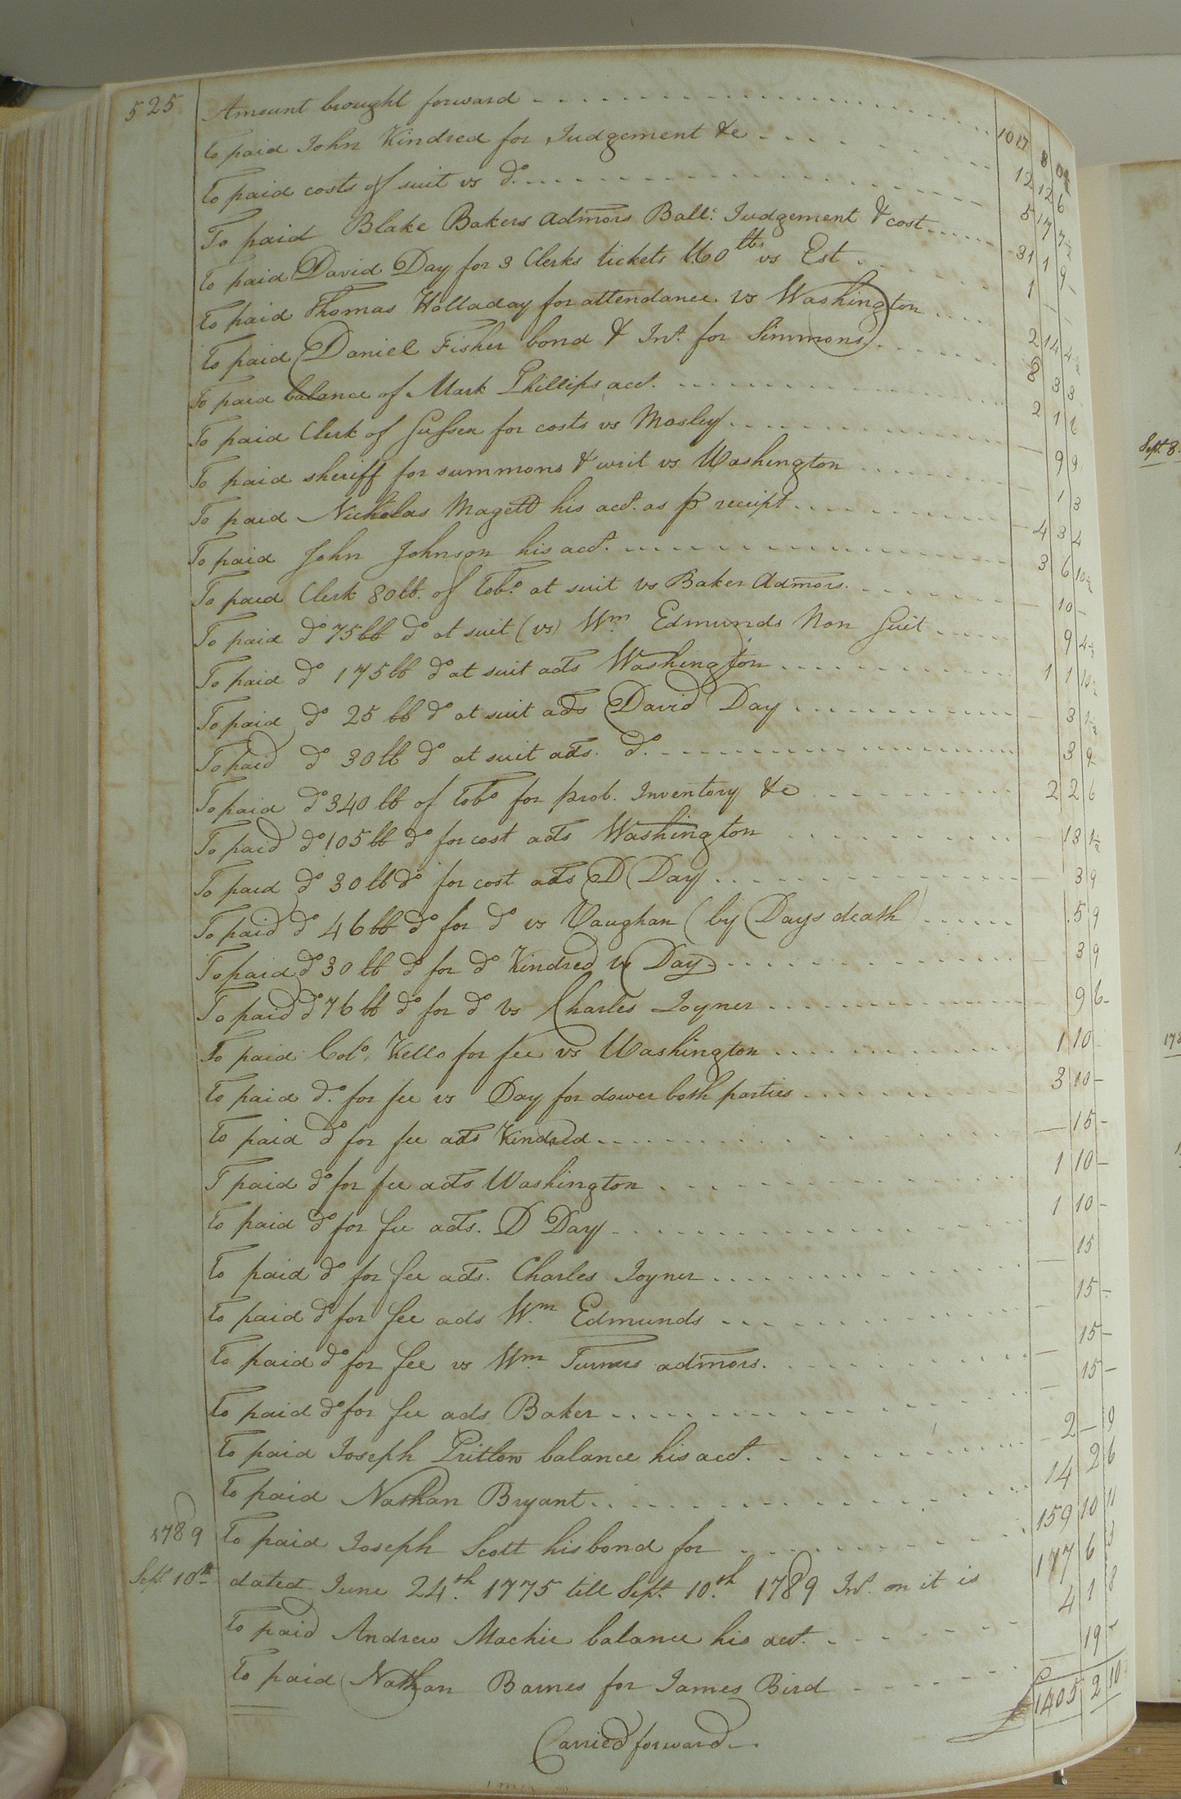 525
Amount brought forward 1017 8
To paid John Kindred for Judgement &c 12 12 6
To paid costs of suit vs do. 5 17
To paid Blake Bakers Admors Ball: Judgement & cost 31 1 9
To paid David Day for 3 Clerks tickets 160 lbs vs Est 1 - -
To paid Thomas Holladay for attendance vs Washington 2 14
To paid Daniel Fisher bond & Int. for Simmons 8 3 3
To paid balance of Mark Phillips acct. 2 1 6
To paid Clerk of Sussex for costs vs Mosley - 9 9
To paid sheriff for summons & writ vs Washington 1 3
To paid Nicholas Magett his acct. as p receipt 4 3 4
To paid John Johnson his acct. 3 6 10½
To paid Clerk 80lb. of Tobo. at suit vs Baker Admors. - 10 -
To paid do 75lb do at suit (vs) Wm Edmunds Non Suit 9 4½
To paid do 175lb do at suit ads Washington 1 1 10½
To paid do 25 lb do at suit ads David Day - 3 1½
To paid do 30lb do at suit ads. do. 3 9
To paid do 340 lb of Tobo for prob. Inventory &c 2 2 6
To paid do 105lb do for cost ads Washington - 13 1½
To paid do 30lb do for cost ads D Day - 3 9
To paid do 46lb do for do vs Vaughan (by Days death) 5 9
To paid do 30 lb do for do Kindred vs Day - 3 9
To paid do 76lb do for do vs Charles Joyner - 9 6
To paid Colo. Kello for fee vs Washington 1 10
To paid do. for fee vs Day for dower both parties 3 10 -
To paid do for fee ads Kindred - 15 -
T paid do for fee ads Washington 1 10 -
To paid do for fee ads. D Day 1 10 -
To paid do for fee ads. Charles Joyner - 15
To paid do for fee ads Wm Edmunds - 15 -
To paid do for fee vs Wm Turners admors. - 15 -
To paid do for fee ads Baker - 15 -
To paid Joseph Pritlow balance his acct. 2 - 9
To paid Nathan Bryant 14 2 6
1789 To paid Joseph Scott his bond for 159 10 11
Sept. 10th dated June 24th. 1775 till Sept. 10th. 1789 Int. on it is 177 6 3
To paid Andrew Mackie balance his acct. 4 1 8
To paid Nathan Barnes for James Bird - 19 -
Carried forward £1405 2 10
Sept. 8.